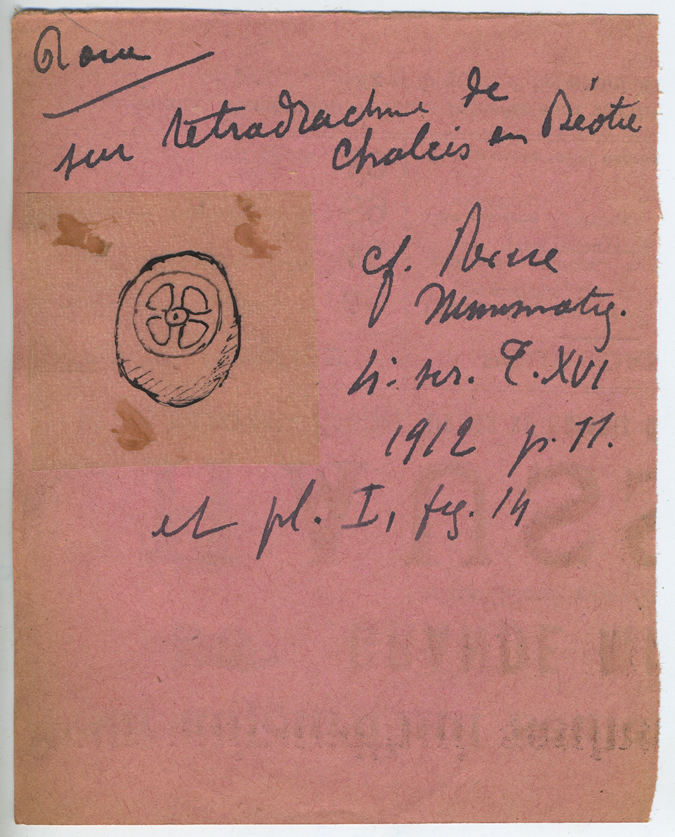 Roue
sur tetradrachme de
Chalcis en Béotie
cf. Revue
Numismatiq.
4e. ser. T. XVI
1912 p. 11.
et pl. I, fig. 14